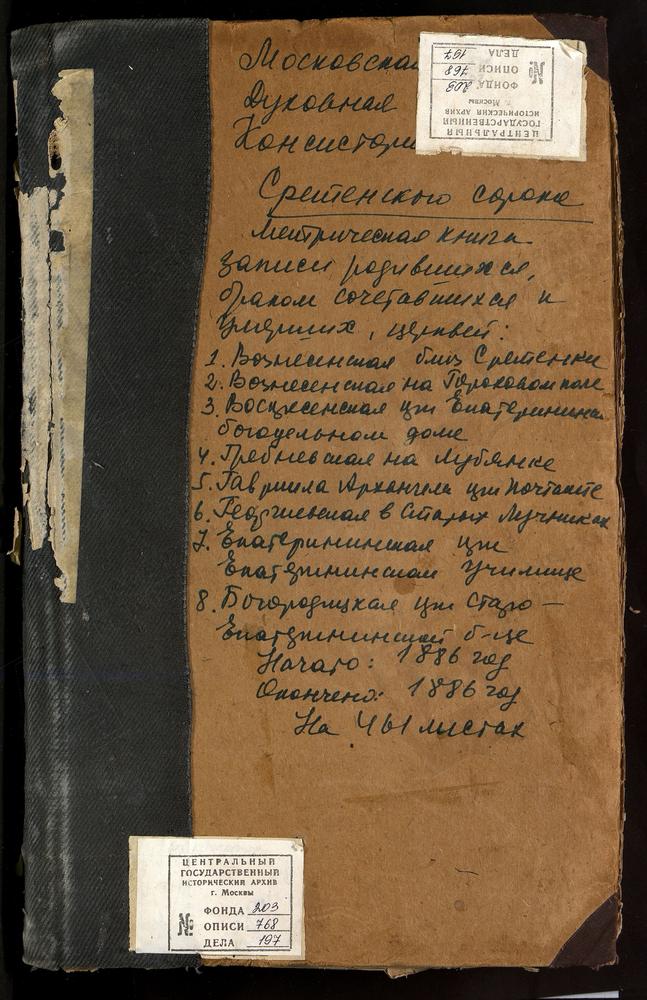 Московская
Духовная
Консистори
ЦЕНТРАЛЬНЫЙ
ГОСУДАРСТВЕННЫЙ
ИСТОРИЧЕСКИЙ АРХИВ
г. Москвы
ФОНДА 203
№ ОПИСИ 768
ДЕЛА 197
Сретенского сорока
метрическая книга
записи родившихся,
браком сочетавшихся и
умерших, церквей:
1. Вознесенская близ Сретенки
2. Вознесенская на Гороховом поле
3. Воскресенская при Екатерининск
богодельном доме
4. Гребневская на Лубянке
5. Гавриила Архангела при Почтамте
6. Георгиевская в Старых Лучниках
7. Екатерининская при
Екатерининском училище
8. Богородицкая при Старо-
Екатерининской б-це
Начато: 1886 год
Окончено: 1886 год
На 461 листах
ЦЕНТРАЛЬНЫЙ
ГОСУДАРСТВЕННЫЙ
ИСТОРИЧЕСКИЙ АРХИВ
г. Москвы
ФОНДА 203
№ ОПИСИ 768
ДЕЛА 197